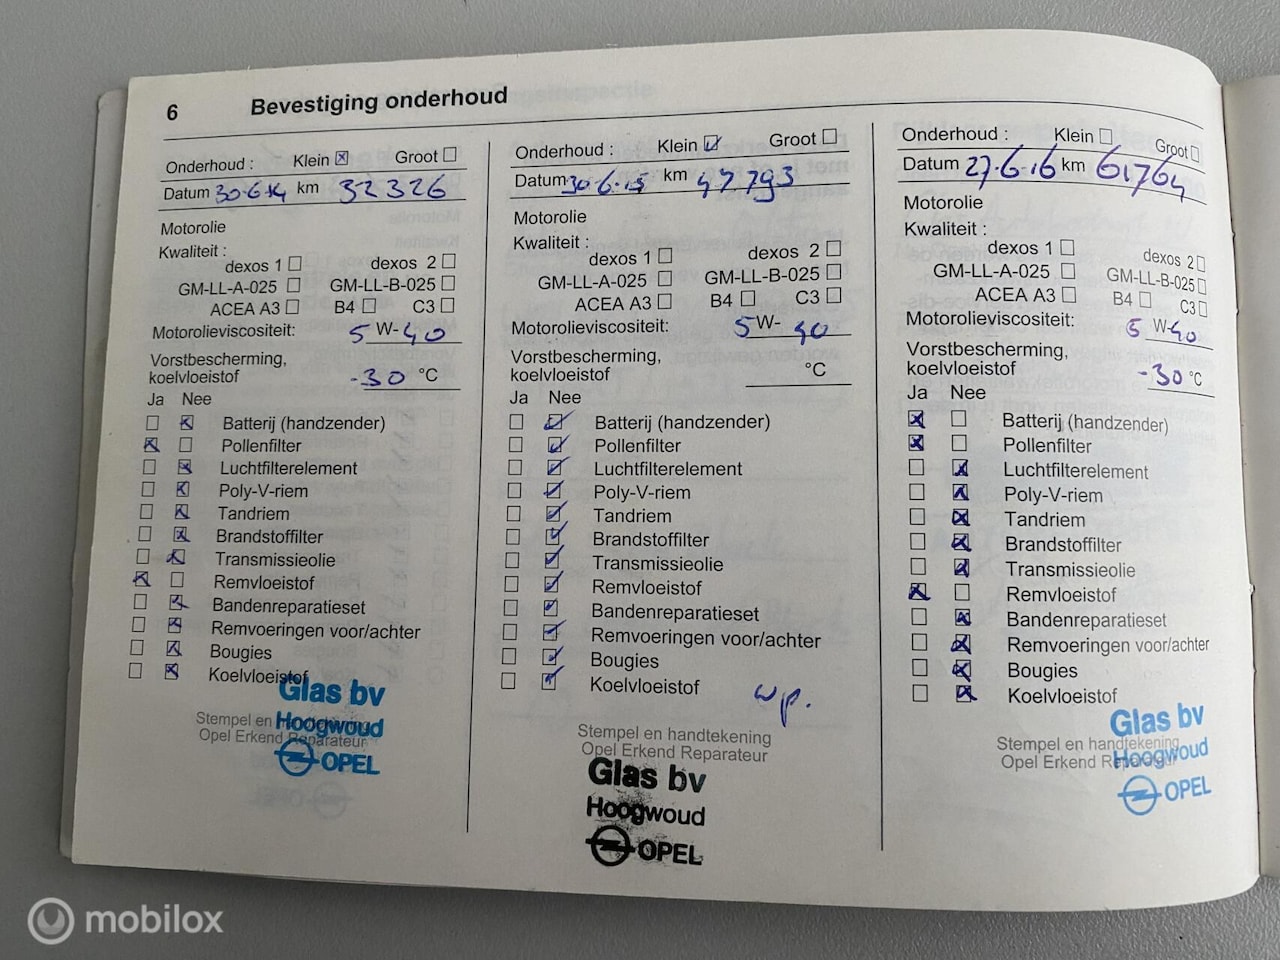 6 Bevestiging onderhoud
Onderhoud : Klein Groot
Datum 30-6-14 km 32326
Motorolie
Kwaliteit :
dexos 1 dexos 2
GM-LL-A-025 GM-LL-B-025
ACEA A3 B4 C3
Motorolieviscositeit: 5 W-40
Vorstbescherming,
koelvloeistof -30 °C
Ja Nee
Batterij (handzender)
Pollenfilter
Luchtfilterelement
Poly-V-riem
Tandriem
Brandstoffilter
Transmissieolie
Remvloeistof
Bandenreparatieset
Remvoeringen voor/achter
Bougies
Koelvloeistof
Glas bv
Stempel en handtekening
Hoogwoud
Opel Erkend Reparateur
OPEL
Onderhoud : Klein Groot
Datum 30-6-15 km 47793
Motorolie
Kwaliteit :
dexos 1 dexos 2
GM-LL-A-025 GM-LL-B-025
ACEA A3 B4 C3
Motorolieviscositeit: 5 W- 40
Vorstbescherming,
koelvloeistof °C
Ja Nee
Batterij (handzender)
Pollenfilter
Luchtfilterelement
Poly-V-riem
Tandriem
Brandstoffilter
Transmissieolie
Remvloeistof
Bandenreparatieset
Remvoeringen voor/achter
Bougies
Koelvloeistof
wp.
Stempel en handtekening
Opel Erkend Reparateur
Glas bv
Hoogwoud
OPEL
Onderhoud : Klein Groot
Datum 27.6.16 km 61764
Motorolie
Kwaliteit :
dexos 1 dexos 2
GM-LL-A-025 GM-LL-B-025
ACEA A3 B4 C3
Motorolieviscositeit: 5 W-40
Vorstbescherming,
koelvloeistof -30 °C
Ja Nee
Batterij (handzender)
Pollenfilter
Luchtfilterelement
Poly-V-riem
Tandriem
Brandstoffilter
Transmissieolie
Remvloeistof
Bandenreparatieset
Remvoeringen voor/achter
Bougies
Koelvloeistof
Glas bv
Stempel en handtekening
Hoogwoud
Opel Erkend Reparateur
OPEL
mobilox